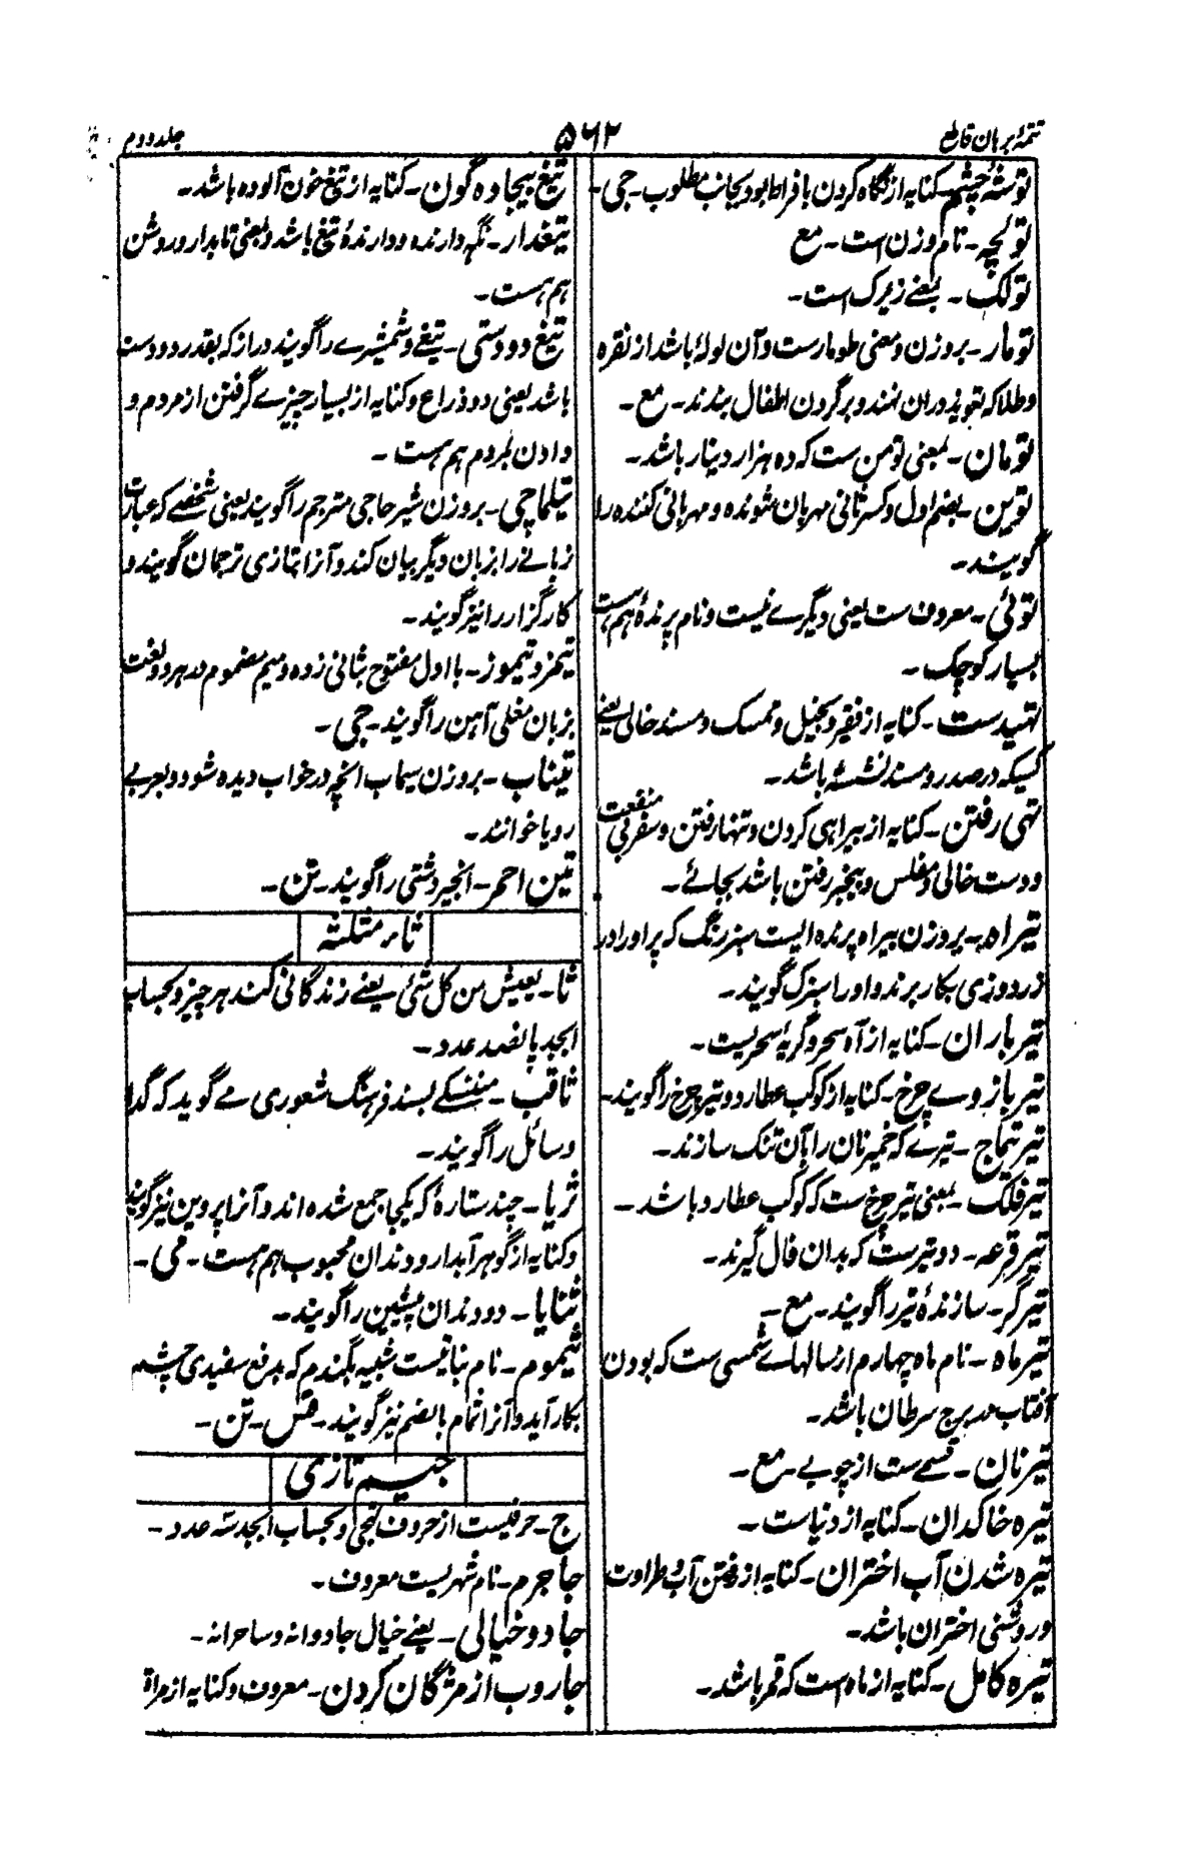 تتمهٔ برهان قاطع
۵۶۲
جلد دوم
توشهٔ چشم - کنایه از نگاه کردن بافراط بود بجانب مطلوب - جی -
تولچه - نام وزن است - مع
تولک - بمعنے زیرک است -
تومار - بروزن و معنی طومارست و آن لولۀ باشد از نقره
و طلا که تعویذ دران نهند و بر گردن اطفال بندند - مع -
تومان - بمعنی تومن ست که ده هزار دینار باشد -
توین - بضم اول و کسر ثانی مهربان شونده و مهربانی کننده را
گویند -
توئی - معروف ست یعنی دیگرے نیست و نام پرندۀ هم هست
بسیار کوچک -
تهیدست - کنایه از فقیر و بخیل و ممسک و مسند خالی یعنے
کسیکه در صدر و مسند نشسته باشد -
تهی رفتن - کنایه از بیراهی کردن و تنها رفتن و سفر بی منفعت
و دست خالی و مفلس و بیخبر رفتن باشد بجائے -
تیراه - بروزن بیراه پرنده ایست سبزرنگ که پر او را در
زردوزی بکار برند و او را سبزک گویند -
تیرباران - کنایه از آه سحر و گریهٔ سحریست -
تیر بازوے چرخ - کنایه از کوکب عطارد و تیر چرخ را گویند -
تیر تتماج - تیرے که خمیر نان را بآن تنک سازند -
تیر فلک - بمعنی تیر چرخ ست که کوکب عطارد باشد -
تیر قرعه - دو تیرست که بدان فال گیرند -
تیرگر - سازندۀ تیر را گویند - مع -
تیر ماه - نام ماه چهارم از سالهاے شمسی ست که بودن
آفتاب در برج سرطان باشد -
تیرنان - قسمے ست از چوبے - مع -
تیره خاکدان - کنایه از دنیاست -
تیره شدن آب اختران - کنایه از رفتن آب و طراوت
و روشنی اختران باشد -
تیره کامل - کنایه از ماه است که قمر باشد -
تیغ بیجاده گون - کنایه از تیغ خون آلوده باشد -
تیغدار - نگهدارنده و دارندۀ تیغ باشد و بمعنی تابدار و روشن
هم هست -
تیغ دودستی - تیغے و شمشیرے را گویند دراز که بقدر دو دست
باشد یعنی دو ذراع و کنایه از بسیار چیزے گرفتن از مردم و
دادن بمردم هم هست -
تیلماچی - بروزن شیر حاجی مترجم را گویند یعنی شخصے که عبارت
زبانے را بزبان دیگر بیان کند و آنرا بتازی ترجمان گویند و
کارگزار را نیز گویند -
تیمز و تیموز - با اول مفتوح بثانی زده و میم مضموم در هر دو لغت
بزبان مغلی آهن را گویند - جی -
تیناب - بروزن سیماب انچه در خواب دیده شود و بعربی
رویا خوانند -
تین احمر - انجیر دشتی را گویند - تن -
ثاء مثلثه
ثا - یعیش من کل شئ یعنے زندگانی کند هر چیز و بحساب
ابجد پانصد عدد -
ثاقب - بسند فرهنگ شعوری مے گوید که گدا
و سائل را گویند -
ثریا - چند ستارۀ که یکجا جمع شده اند و آنرا پروین نیز گویند
و کنایه از گوهر آبدار و دندان محبوب هم هست - می -
ثنایا - دو دندان پیشین را گویند -
ثیموم - نام نباتیست شبیه بگندم که بدفع سفیدی چشم
بکار آید و آنرا ثمام بالضم نیز گویند - قس - تن -
جیم تازی
ج - حرفیست از حروف تهجی و بحساب ابجد سه عدد -
جاجرم - نام شهریست معروف -
جادو خیالی - یعنے خیال جادوانه و ساحرانه -
جاروب از مژگان کردن - معروف و کنایه از مراة